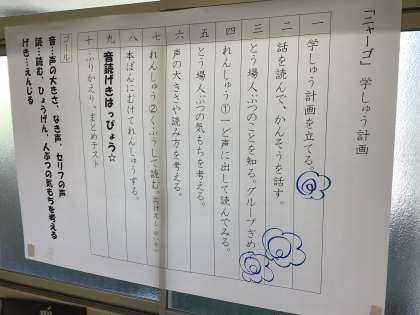 「ニャーゴ」 学しゅう計画
一 学しゅう計画を立てる。
二 話を読んで、かんそうを話す。
三 とう場人ぶつのことを知る。グループぎめ
四 れんしゅう① 一ど声に出して読んでみる。
五 とう場人ぶつの気もちを考える。
六 声の大きさや読み方を考える。
七 れんしゅう② くふうして読む。
八 本ばんにむけてれんしゅうする。
九 音読げきはっぴょう☆
十 ふりかえり、まとめテスト
ゴール
音…声の大きさ、なき声、セリフの声
読…読む、ひょうげん、人ぶつの気もちを考える
げき…えんじる